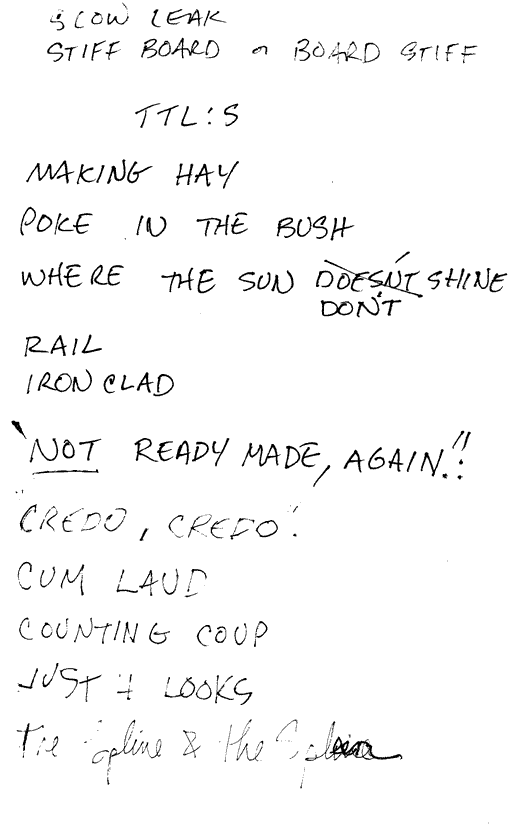 SLOW LEAK
STIFF BOARD or BOARD STIFF
TTL:S
MAKING HAY
POKE IN THE BUSH
WHERE THE SUN DOESN'T SHINE
DON'T
RAIL
IRON CLAD
"NOT READY MADE, AGAIN."!
"CREDO, CREDO".
CUM LAUD
COUNTING COUP
JUST 4 LOOKS
The Spline & the